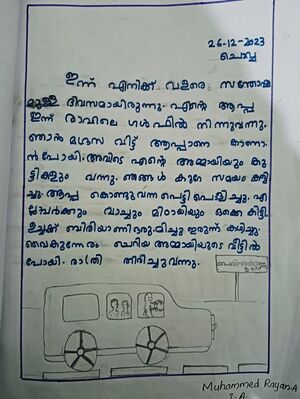 26-12-2023
ചൊവ്വ
ഇന്ന് എനിക്ക് വളരെ സന്തോഷ
മുള്ള ദിവസമായിരുന്നു. എന്റെ ആപ്പ
ഇന്ന് രാവിലെ ഗൾഫിൽ നിന്നുവന്നു.
ഞാൻ മദ്രസ വിട്ട് ആപ്പാനെ കാണാ
ൻപോയി. അവിടെ എന്റെ അമ്മായിയും കു
ട്ടികളും വന്നു. ഞങ്ങൾ കുറേ സമയം കളി
ച്ചു. ആപ്പ കൊണ്ടുവന്ന പെട്ടി പൊളിച്ചു. എ
ല്ലാവർക്കും വാച്ചും മിഠായിയും ഒക്കെ കിട്ടി.
ഉച്ചക്ക് ബിരിയാണി
വൈകുന്നേരം ചെറിയ അമ്മായിയുടെ വീട്ടിൽ
പോയി. രാത്രി തിരിച്ചുവന്നു.
5 KM
Muhammed Rayan.A